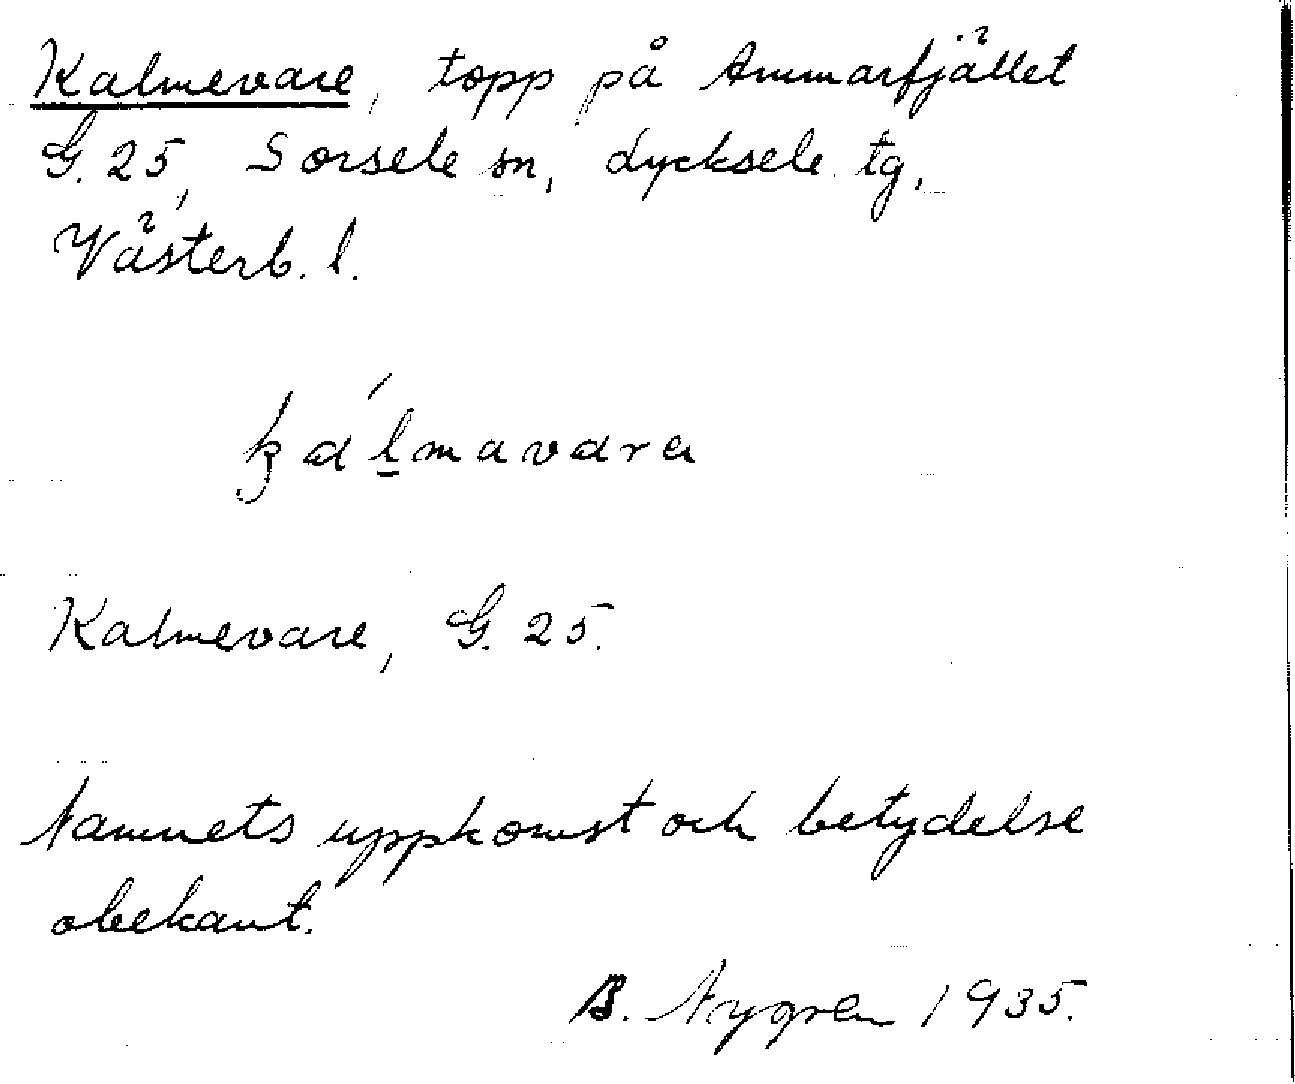 Kalmevare, topp på Ammarfjället
G. 25, Sorsele sn, Lycksele tg,
Västerb. l.
kálmavara
Kalmevare, G. 25.
Namnets uppkomst och betydelse
obekant.
B. Nygren 1935.